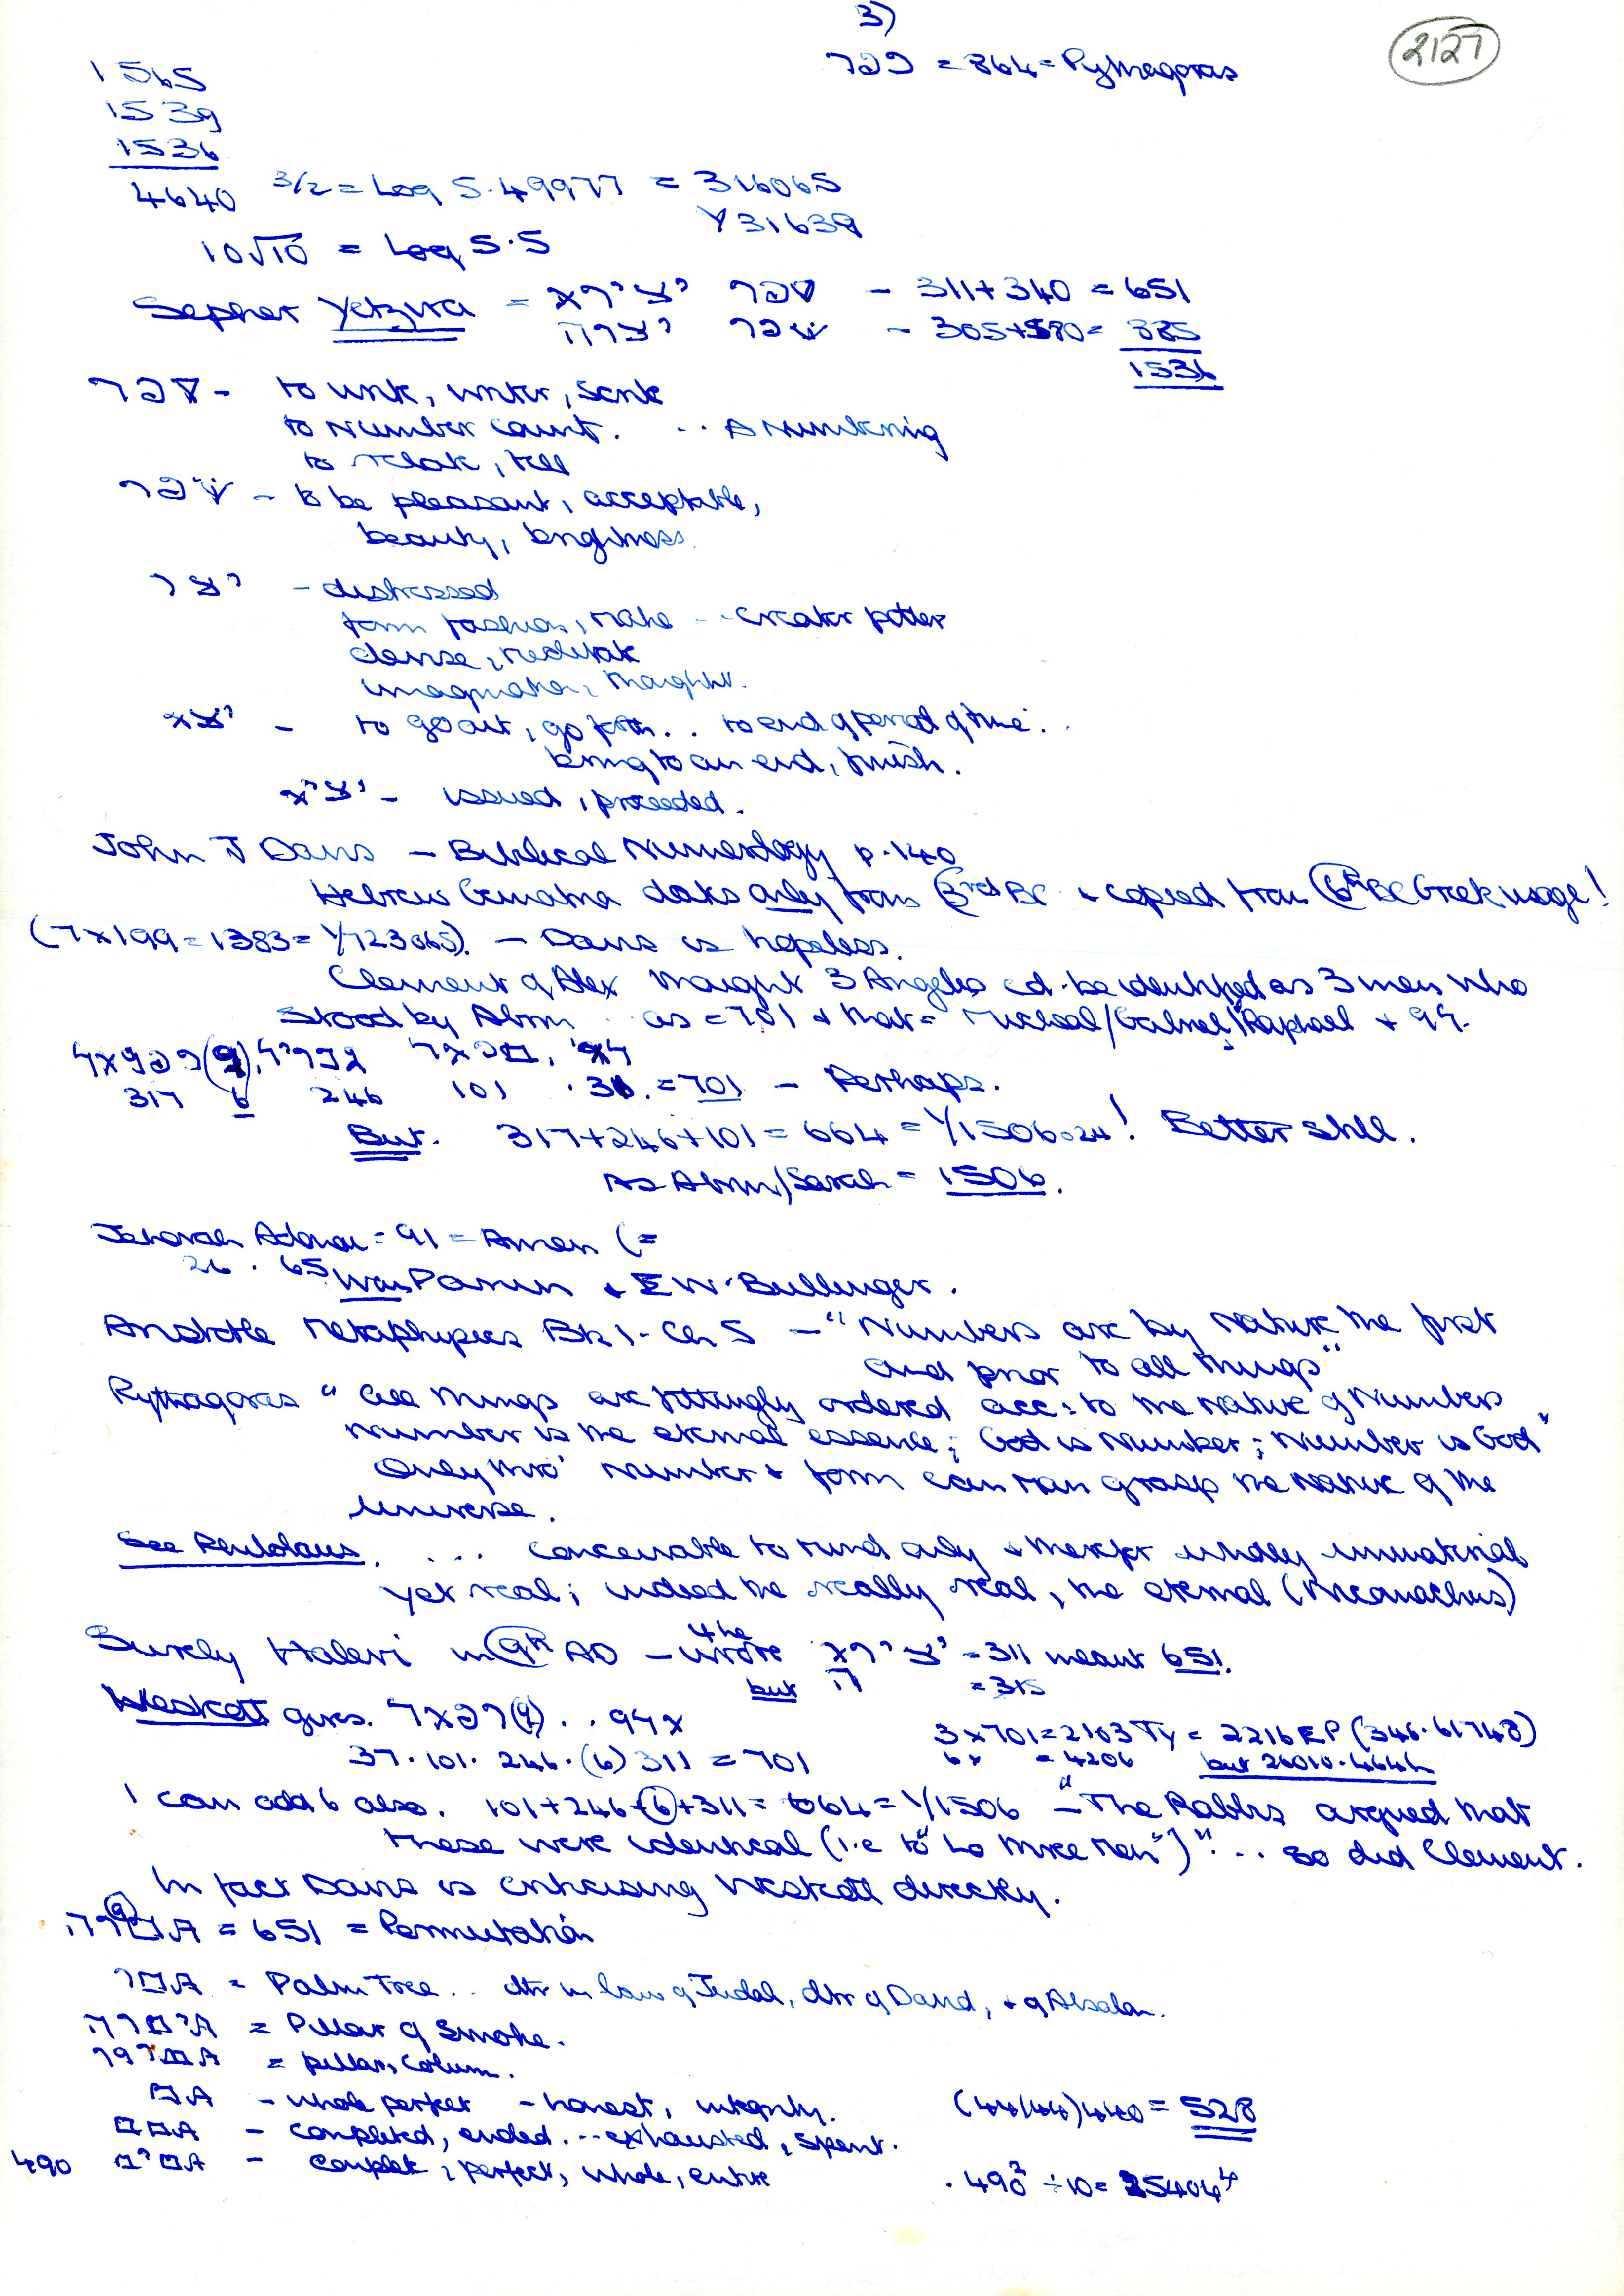 3)
2127
1565
1539
1536
4640 3/2 = Log 5.49977 = 316065
פר = 864 = Pythagoras
Y 31638
10√10 = Log 5.5
Sepher Yetzira = יצירא ספר - 311 + 340 = 651
יצרה שפר - 305 + 580 = 885
1536
ספר - to write, writer, scribe
to number count. .. A numbering
to relate, tell
שפר - to be pleasant, acceptable,
beauty, brightness
יצר - distressed
form fashion, make .. creator potter
devise, meditate
imagination, thought.
יצא - to go out, go forth.. to end of period of time..
bring to an end, finish.
יציא - issued, proceeded.
John J Davis - Biblical Numerology p.140
Hebrew Gematria dates only from 3rd BC & copied from 6th BC Greek usage!
(7x199 = 1383 = 1/723065). - Davis is hopeless.
Clement of Alex thought 3 Angels cd. be identified as 3 men who
stood by Abrm .. as = 701 & that = Michael/Gabriel/Raphael + 94.
317 6 246 101 .31. = 701 - Perhaps.
But. 317+246+101 = 664 = 1/1506.024! Better still.
As Abrm/Sarah = 1506.
Jehovah Adonai = 91 = Amen (=
26 . 65 Ivan Panin & E W. Bullinger.
Aristotle Metaphysics Bk 1 - Ch 5 - "Numbers are by nature the first
and prior to all things"
Pythagoras "All things are fittingly ordered acc: to the nature of Numbers
Number is the eternal essence; God is Number; Number is God"
Only thro' number & form can man grasp the nature of the
universe.
See Philolaus. ... Conceivable to mind only & therefor wholly immaterial
yet real; indeed the really real, the eternal (Nicomachus)
Surely Halevi in 9th AD - wrote יצירא = 311 meant 651.
but ה = 315
Westcott gives.
37. 101. 246. (6) 311 = 701
3 x 701 = 2103 Ty = 2216 EP (346.61748)
6x = 4206 but 26010.4646
I can add 6 also. 101+246+(6)+311 = 664 = 1/1506 - "The Rabbis argued that
these were identical (i.e to "Lo three men")".. so did Clement.
In fact Davis is criticising Westcott directly.
= 651 = Permutation
תמר = Palm Tree.. dtr in law of Judah, dtr of David, & of Absalom.
תימרה = Pillar of Smoke.
= pillar, column.
תם - whole perfect - honest, integrity.
(44/44) 440 = 528
תמם - completed, ended... exhausted, spent.
490 תמים - complete, perfect, whole, entire
.490² ÷ 10 =